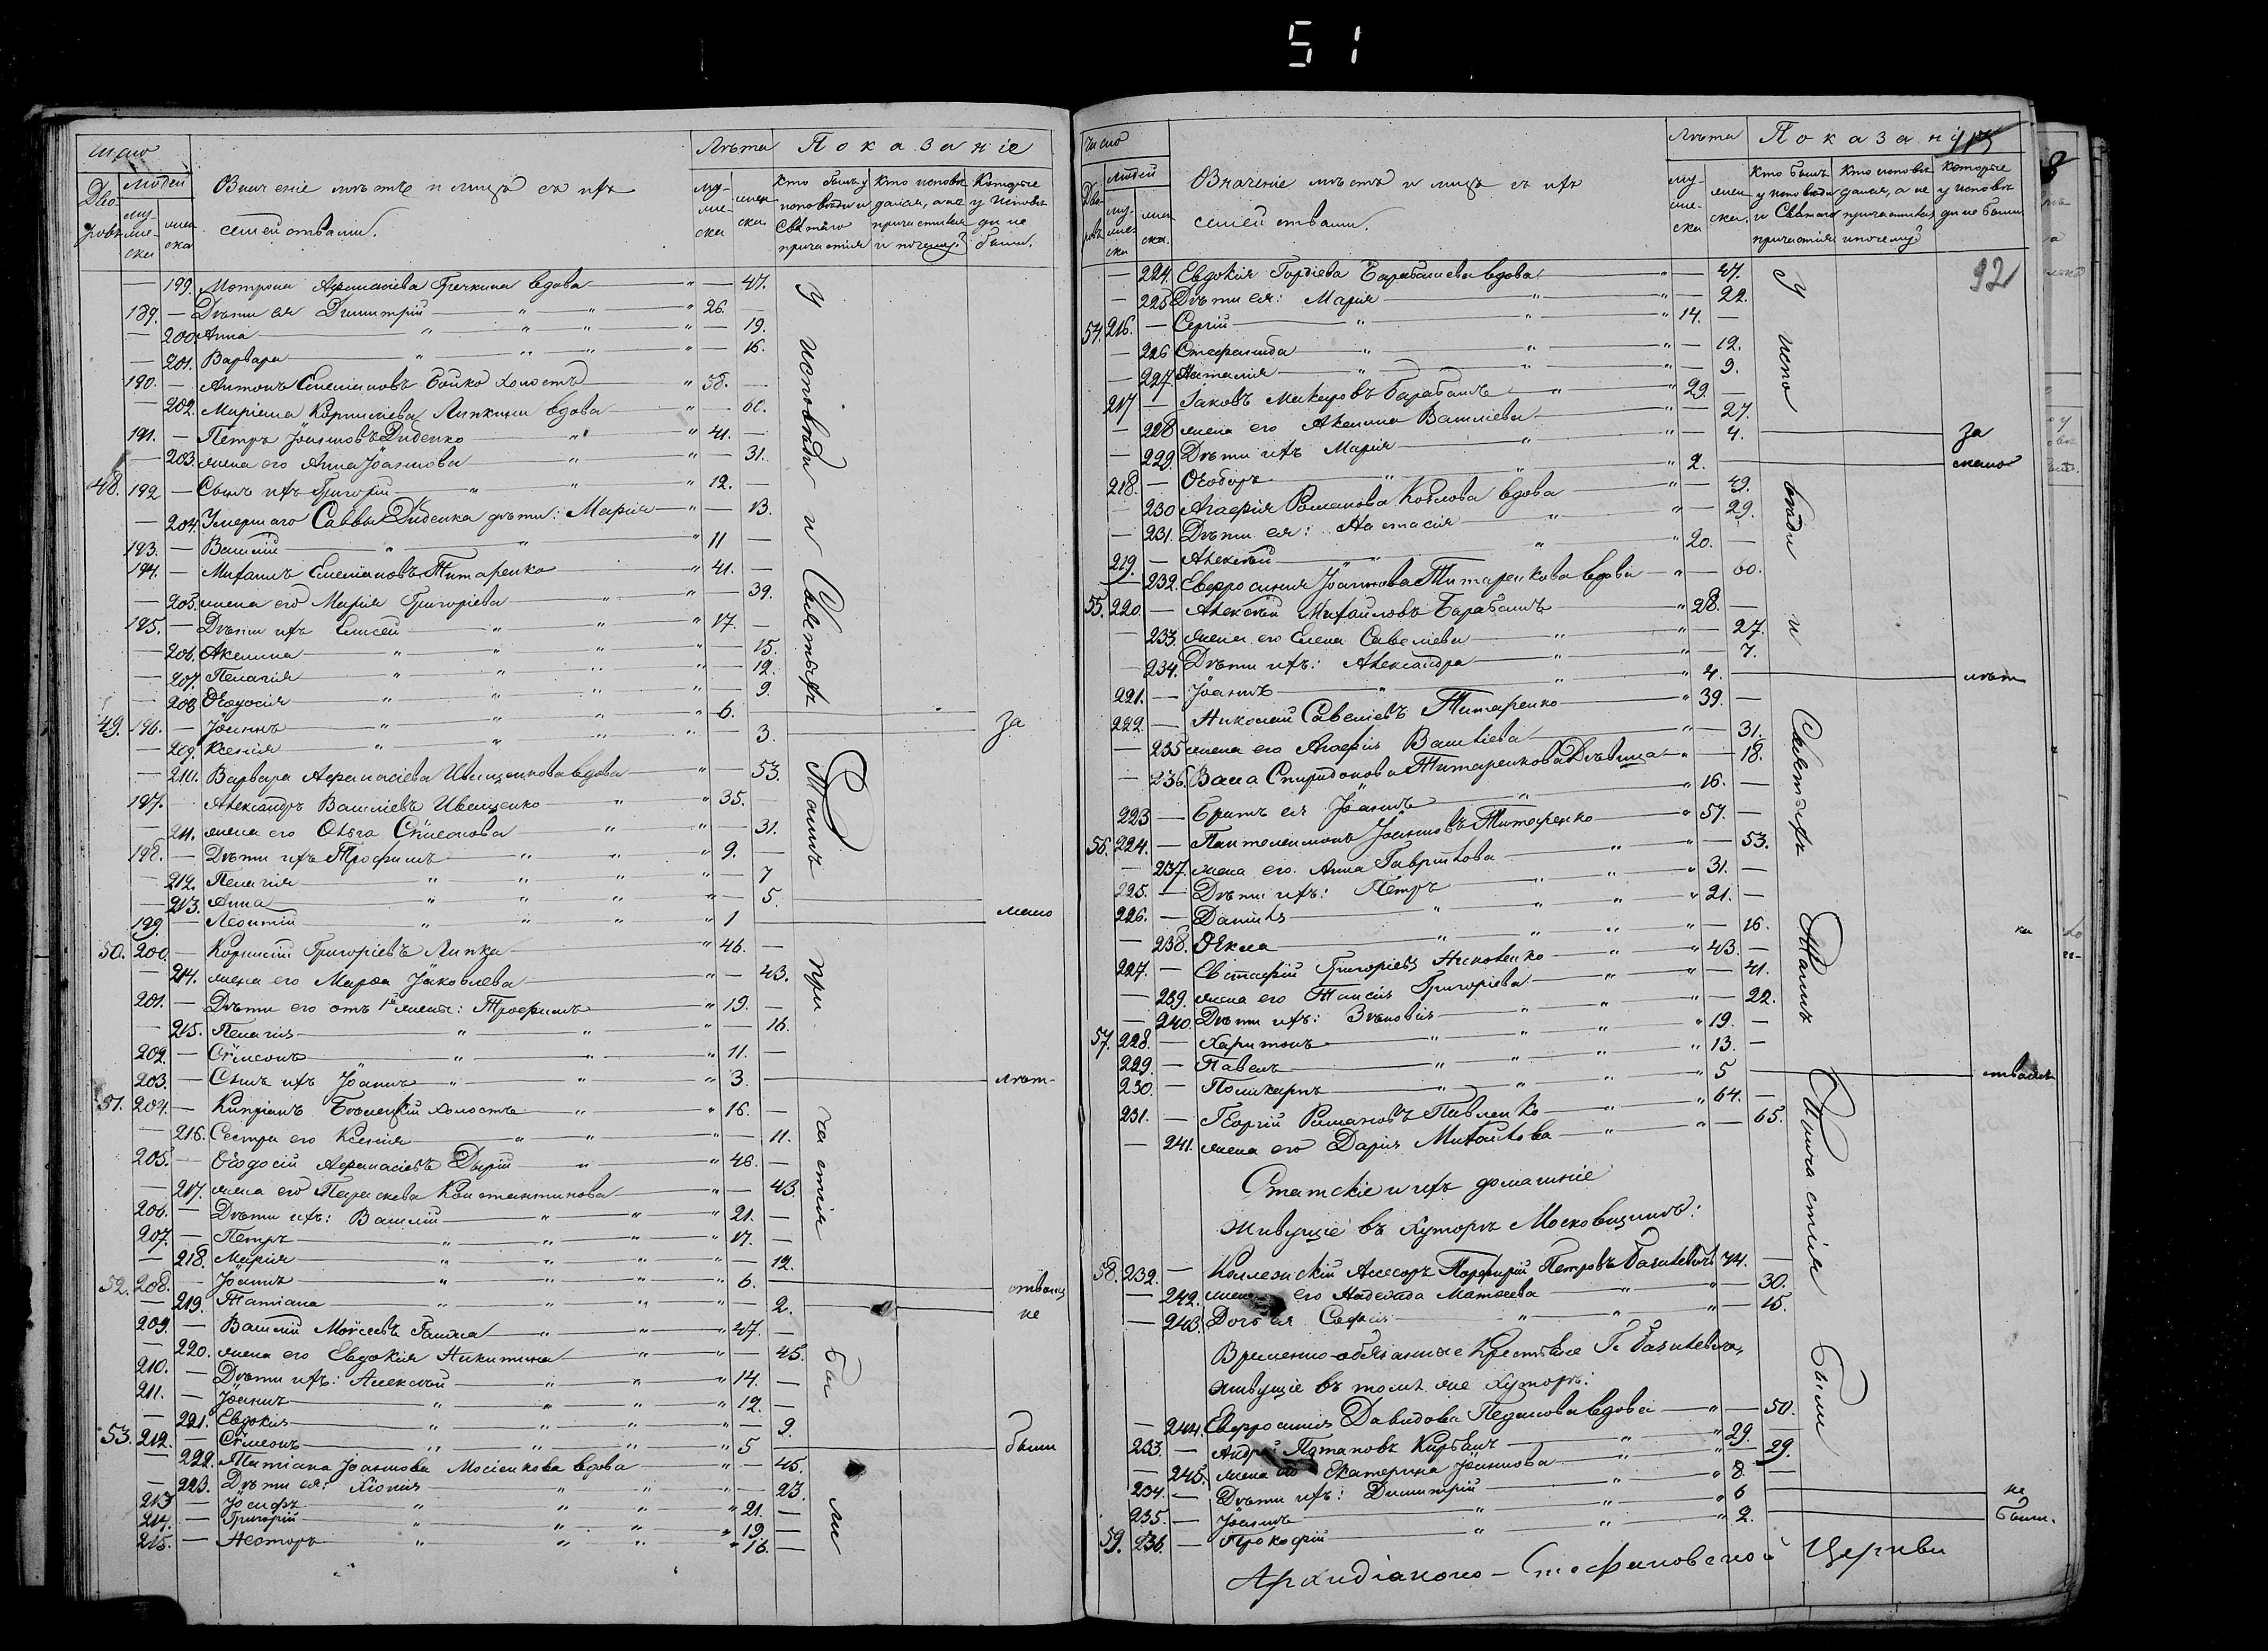 51
число
Дворовъ
людей
муже-
ска
жен
ска
Значеніе мѣстъ и лицъ съ ихъ
семействами.
Лѣта
му-
же-
ска
жен
ска.
Показаніе
Кто былъ у
исповѣди и
Святаго
причастія
Кто исповѣ
дался, а не
причастился
и почему?
Которые
у исповѣ
ди не
были.
— 199. Мотрона Афанасіева Гречкина вдова " — 47.
189. — Дѣти ея Димитрій " " " 26. —
— 200 Анна " " " " — 19.
— 201. Варвара " " " " — 16.
190. — Антонъ Емеліановъ Бойко холостъ " 58. —
— 202. Маріана Корниліева Липкина вдова " — 60.
191. — Петръ Іоанновъ Диденко " " 41. —
— 203. жена его Анна Іоаннова " " — 31.
48. 192 — Сынъ ихъ Григорій " " " 12. —
— 204. Умершаго Саввы Диденка дѣти: Марія " — 13.
193. — Василій " " " 11 —
194. — Михаилъ Емеліановъ Титаренко " 41. —
— 205. жена его Марія Григоріева " " — 39.
195. — Дѣти ихъ Елисей " " " 17. —
— 206. Акелина " " " " — 15.
— 207. Пелагія " " " " — 12.
— 208 Ѳеодосія " " " " — 9.
49. 196. — Іоаннъ " " " " 6. за
— 209. Ксенія " " " " — 3.
— 210. Варвара Афанасіева Иващенкова вдова " — 53.
197. Александръ Василіевъ Иващенко " " 35.
— 211. жена его Ольга Сѵмеонова " " — 31.
198. — Дѣти ихъ Трофимъ " " " 9. —
— 212. Пелагія " " " " — 7
— 213. Анна " " " " — 5.
199. — Леонтій " " " " 1 мало
50. 200. — Корнилій Григоріевъ Липка " 46. —
— 214. жена его Марѳа Іаковлева " — 43.
201. — Дѣти его отъ 1й жены: Трофимъ " 19. —
— 215. Пелагія " " " — 16.
202. — Сѵмеонъ " " " 11. —
203. — Сынъ ихъ Іоаннъ " " " 3. лѣт-
51. 204. — Кипріанъ Бѣлецкій холостъ " " 16. —
— 216. Сестра его Ксенія " " " — 11.
205. — Ѳеодосій Афанасіевъ Дырій " " 46. —
— 217. жена его Параскева Константинова " — 43.
206. — Дѣти ихъ: Василій " " " 21. —
207. — Петръ " " " " 17. —
— 218. Марія " " " " — 12.
52. 208. — Іоаннъ " " " " 6.
— 219. Татіана " " " " — 2. не
209. — Василій Моѵсеевъ " " 47. —
— 220. жена его Евдокія Никитина " " — 45.
210. — Дѣти ихъ: Алексѣй " " " 14. —
211. — Іоаннъ " " " " 12. —
— 221. Евдокія " " " " — 9.
53. 212. — Сѵмеонъ " " " " 5 были
— 222. Татіана Іоаннова Мосіенкова вдова " — 45.
— 223. Дѣти ея: Хіонія " " " — 23.
213 — Іосифъ " " " " 21. —
214. — Григорій " " " " 19 —
215. — Несторъ " " " " 16. —
У исповѣди и Святаго Таинъ при частія бы ли
число
Дво-
ровъ
людей
му-
жес
ска
жен
ска.
Значеніе мѣстъ и лицъ съ ихъ
семействами.
Лѣта
му-
же-
ска
жен
ска.
Показаніе
Кто былъ
у исповѣди
и Святаго
причастія
Кто исповѣ
дался, а не
причастился
и почему?
Которые
у исповѣ
ди не были
92
— 224. Евдокія Гордіева Барабашева вдова " — 47.
— 225 Дѣти ея: Марія " " — 22.
54. 216. — Сергій " " " 14. —
— 226 Стефанида " " " — 12.
— 227. Наталія " " " — 9.
217 — Іаковъ Макаровъ Барабашъ " " 29. —
— 228 жена его Акелина Василіева " — 27.
— 229. Дѣти ихъ Марія " " — 4. за
218. — Ѳеодоръ " " " 2. мало
— 230 Агафія Романова Козлова вдова " — 49.
— 231. Дѣти ея: Настасія " " — 29.
219. — Алексѣй " " " 20. —
— 232. Евфросинія Іоаннова Титаренкова вдова " — 60.
55. 220. — Алексѣй Михайловъ Барабашъ " 28. —
— 233. жена его Елена Савеліева " " — 27.
— 234. Дѣти ихъ: Александра " " — 7.
221. — Іоаннъ " " " 4. лѣт
222. — Николай Савеліевъ Титаренко " 39. —
— 235 жена его Агафія Василіева " — 31.
— 236. Васса Спиридонова Титаренкова Дѣвица " — 18.
223 — Братъ ея Іоаннъ " " 16. —
56. 224. — Пантелеимонъ Іоанновъ Титаренко " 57. —
— 237. жена его Анна Гаврилова " " — 53.
225. — Дѣти ихъ: Петръ " " " 31. —
226. — Даніилъ " " " " 21. —
— 238. Ѳекла " " " " — 16.
227. — Евстафій Григоріевъ Николенко " " 43. —
— 239. жена его Таисія Григоріева " " — 41.
— 240. Дѣти ихъ: Зѣновія " " " — 22.
57. 228. — Харитонъ " " " " 19. —
229. — Павелъ " " " " 13. —
230. — Поликарпъ " " " " 5
231. — Георгій Романовъ Павленко " " 64. —
— 241. жена его Дарія Михайлова " " — 65.
Статскіе и ихъ домашніе
живущіе въ хуторѣ Московщинѣ:
58. 232. — Коллежскій Ассесоръ Порфирій Петровъ Базилевичъ 74. —
— 242. жена его Надежда Матѳеева " " — 30.
— 243. Дочь ея Софія " " — 15.
Временно-обязанные Крестьяне Г. Базилевича,
живущіе въ томъ же хуторѣ:
— 244. Евфросинія Давидова Педанова вдова " — 50.
233. — Андрей Потаповъ " " 29. —
— 245. жена его Екатерина Іоаннова " " — 29.
234. — Дѣти ихъ: Димитрій " " " 8 —
235. — Іоаннъ " " " 6 не
59. 236. — Прокофій " " " 2. были.
у испо вѣди и Святыхъ Таинъ Причастія были
Архидіаконо-Стефановской Церкви